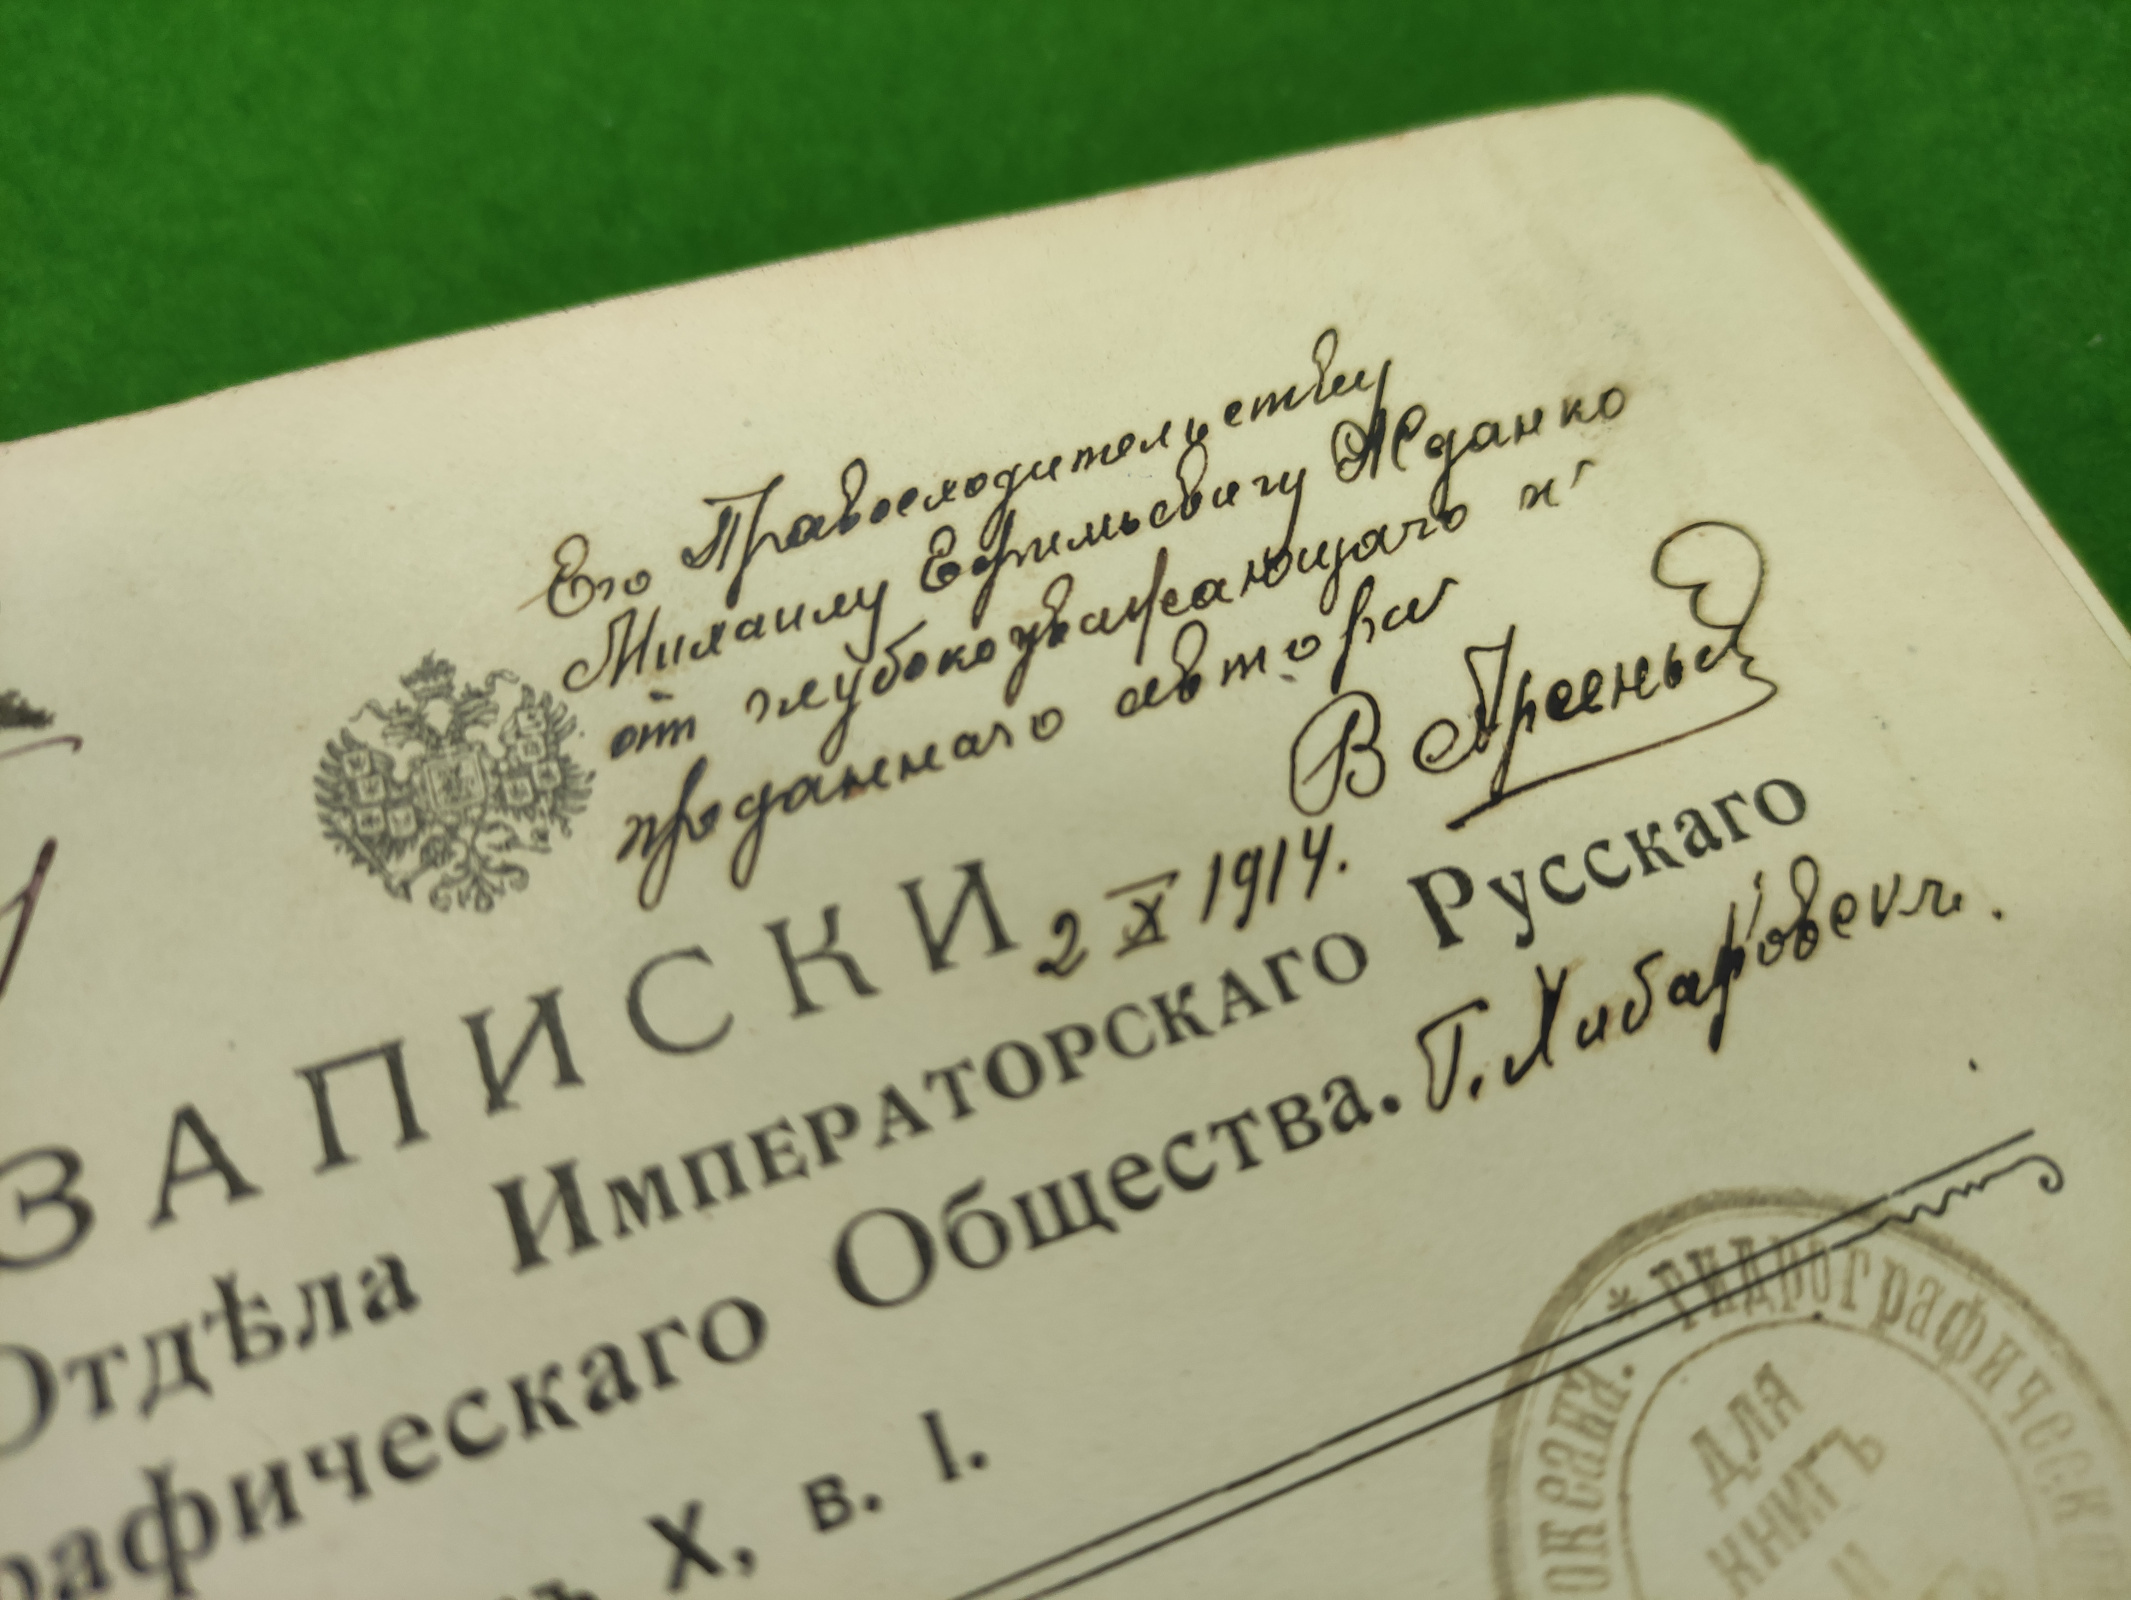 Его Превосходительству
Михаилу Ефимьевичу Жданко
от глубокоуважающаго и
преданнаго автора
В Арсеньев
2 X 1914.
Г. Хабаровскъ.
ЗАПИСКИ
Отдѣла Императорскаго Русскаго
рафическаго Общества.
ъ X, в. I.
* Гидрографическ
океана.
ДЛЯ
КНИГЪ
И